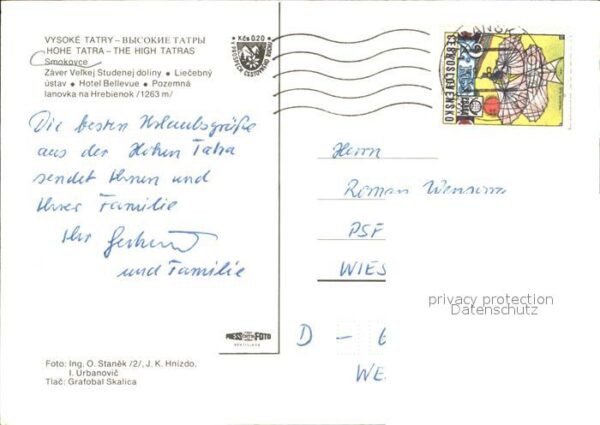 VYSOKÉ TATRY – ВЫСОКИЕ ТАТРЫ
HOHE TATRA – THE HIGH TATRAS
Smokovce
Záver Veľkej Studenej doliny • Liečebný
ústav • Hotel Bellevue • Pozemná
lanovka na Hrebienok /1263 m/
Kčs 0,20
ČESKOSLOVENSKO
Die besten Urlaubsgrüße
aus der Hohen Tatra
sendet Ihnen und
Ihrer Familie
Ihr
und Familie
Herrn
Roman
PSF
WIES
D – 6
WE
privacy protection
Datenschutz
PRESSFOTO
BRATISLAVA
Foto: Ing. O. Staněk /2/, J. K. Hnízdo,
I. Urbanovič
Tlač: Grafobal Skalica